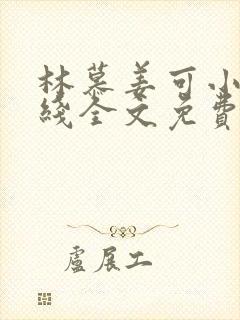 林慕姜可小
綫全文免費
盧展工